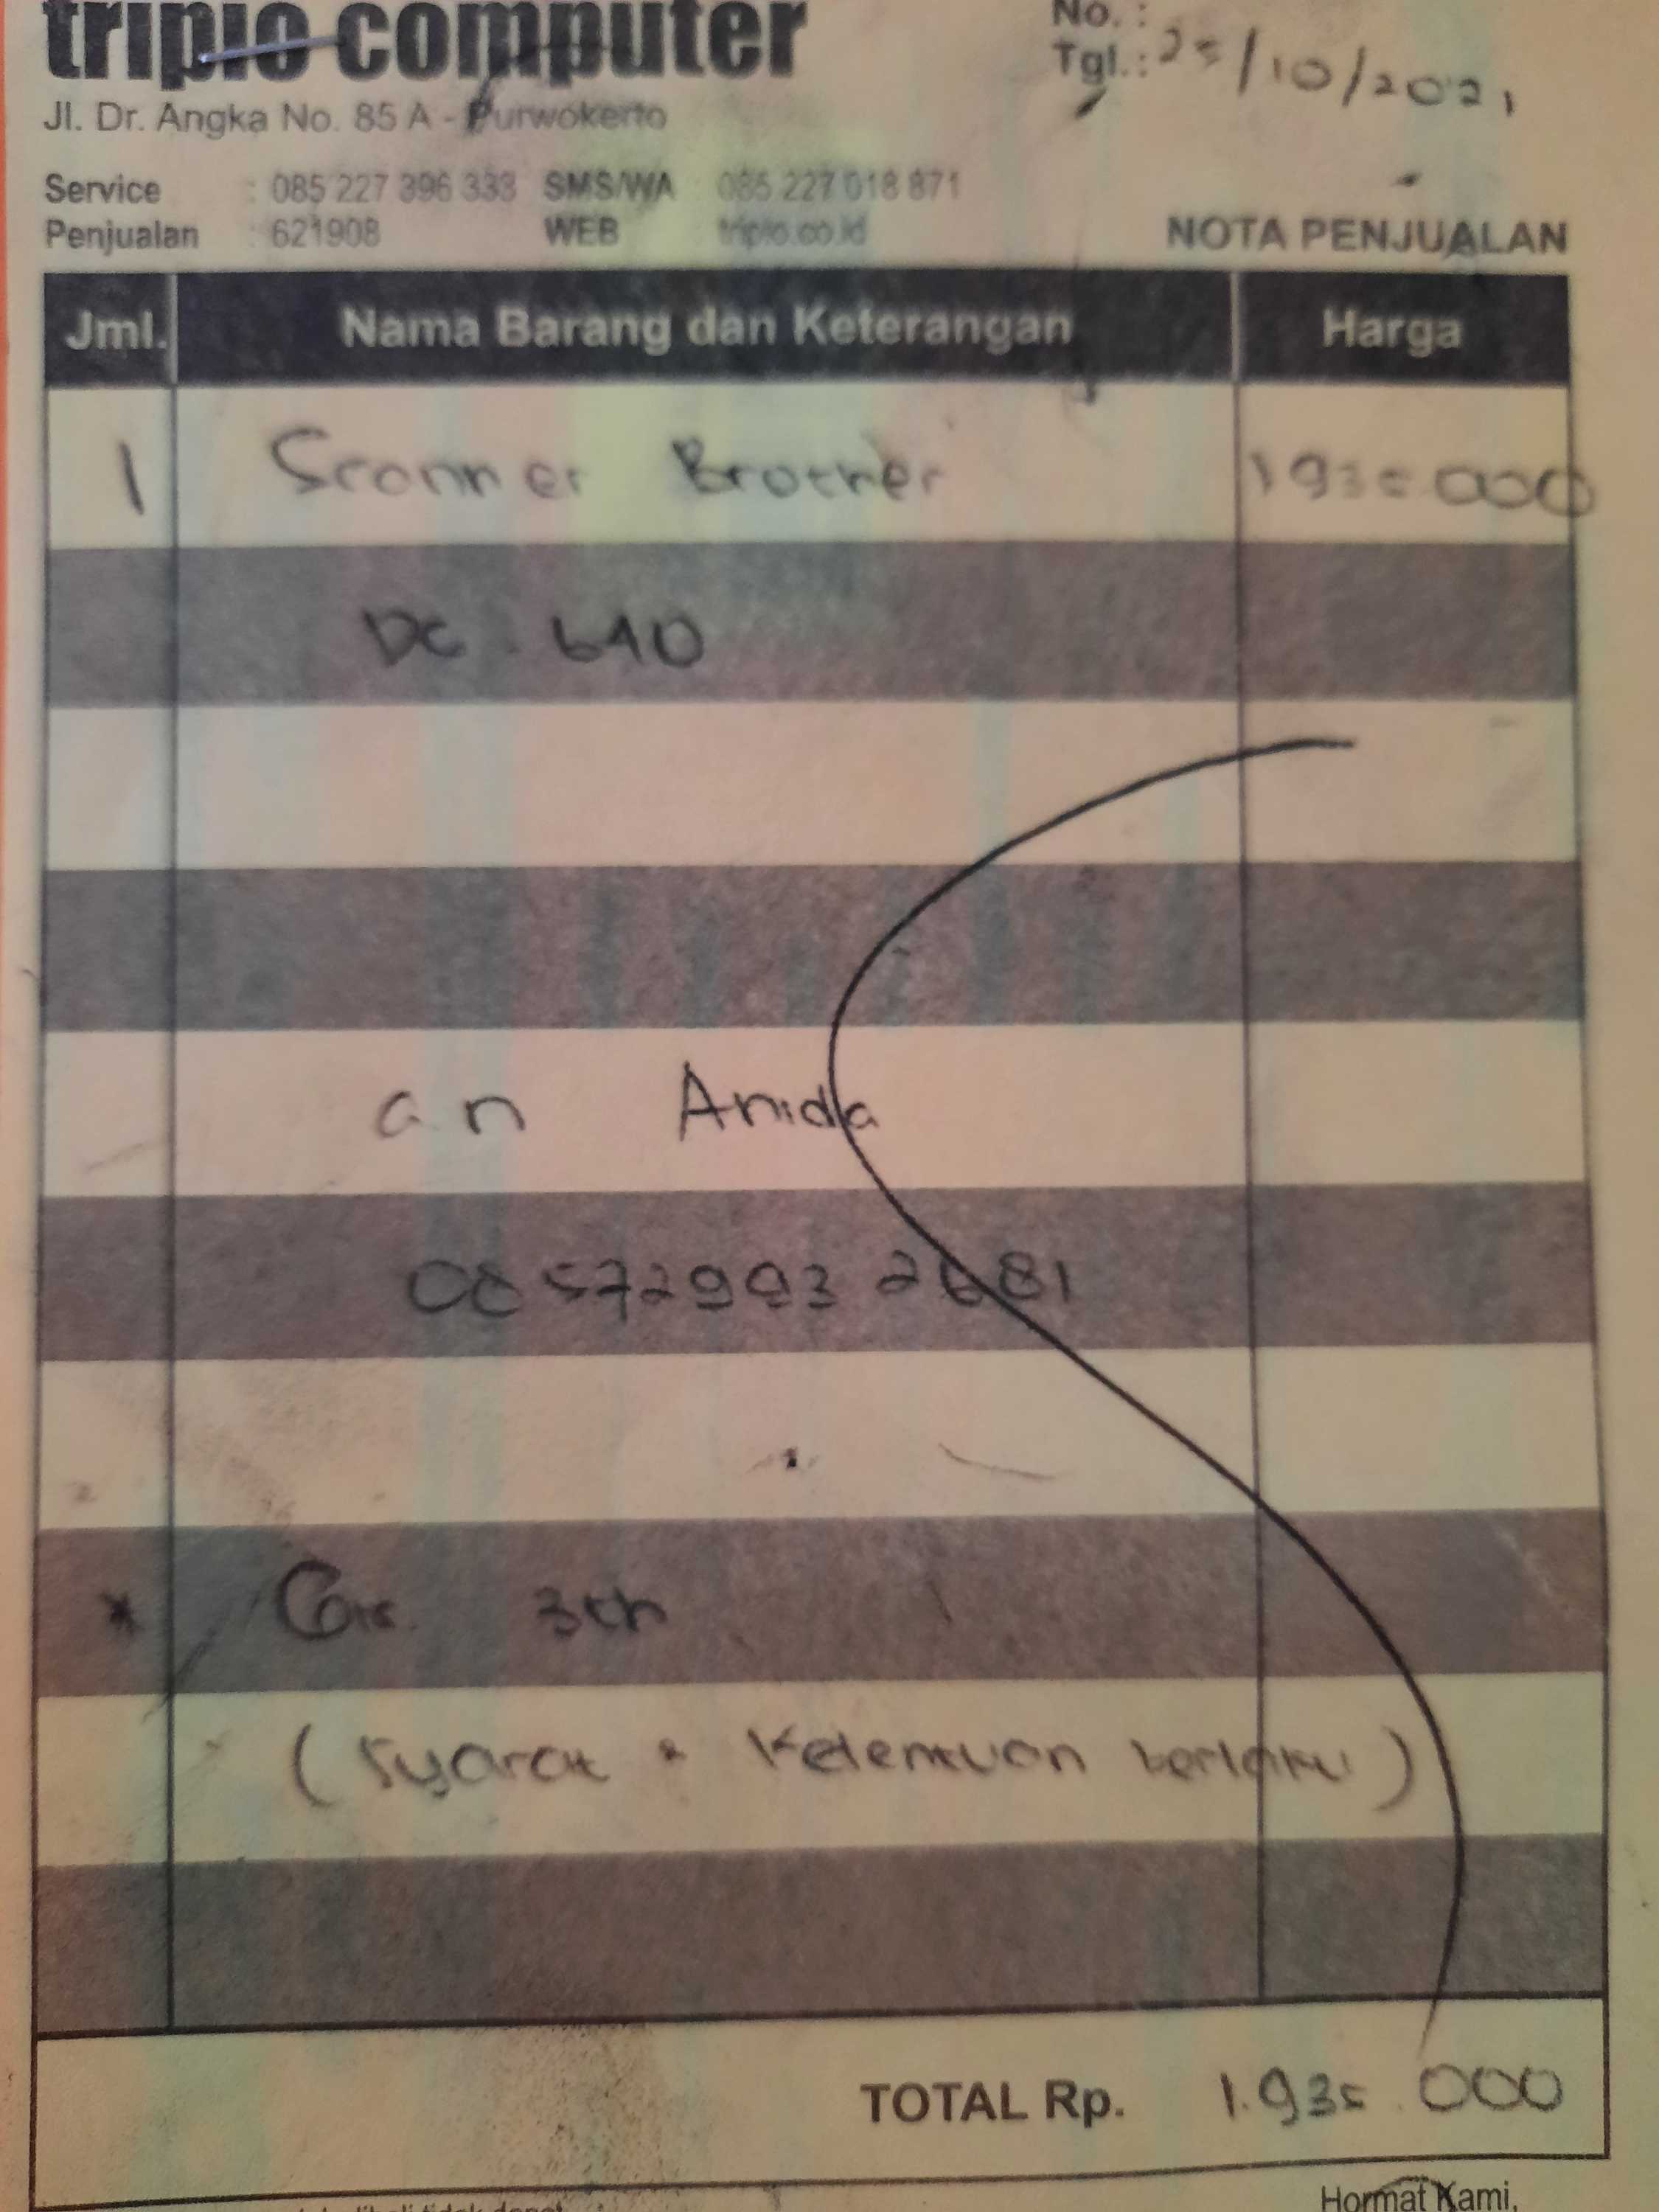 tripio computer
No. :
Tgl. : 25/10/2021
Jl. Dr. Angka No. 85 A - Purwokerto
Service : 085 227 396 333 SMS/WA : 085 227 018 871
Penjualan : 621908 WEB : tripio.co.id
NOTA PENJUALAN
Jml. Nama Barang dan Keterangan Harga
1 Scanner Brother 1935.000
DC. 640
an Anida
085729932681
* Gar. 3th
(Syarat & Ketentuan berlaku)
TOTAL Rp. 1.935.000
Hormat Kami,